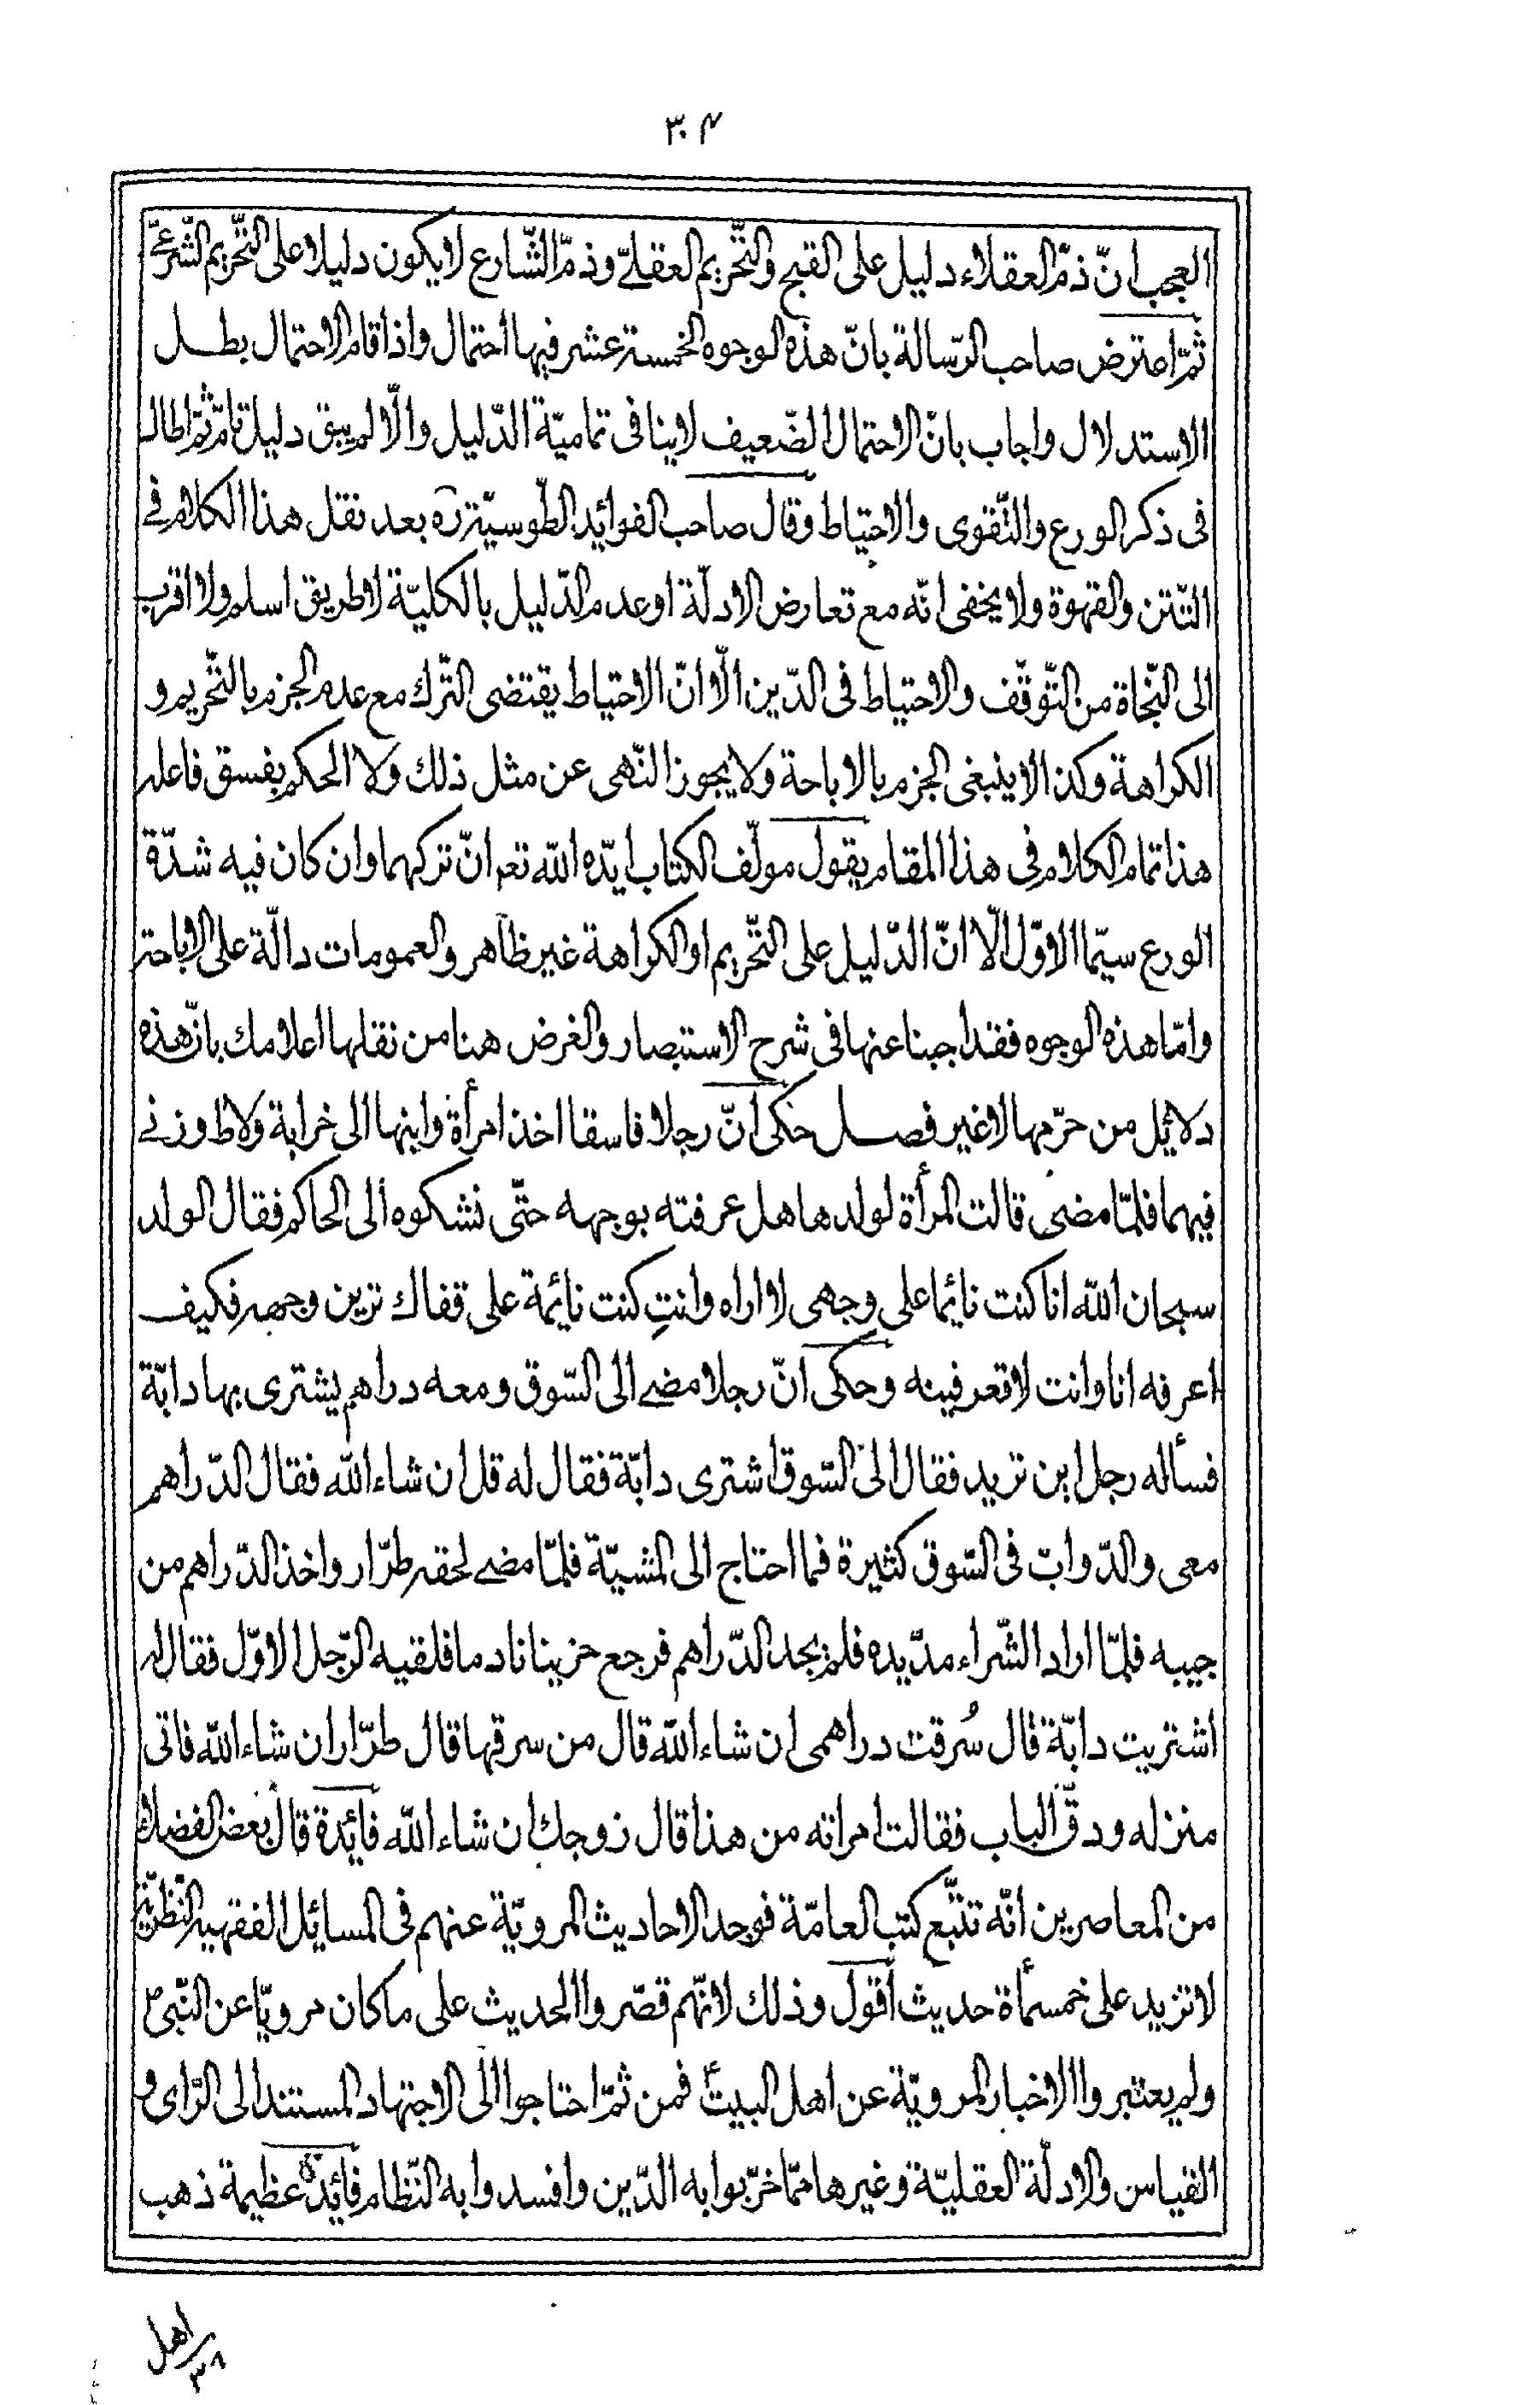 ٣٠٤
العجب انّ ذمّ العقلاء دليل على القبح والتّحريم العقلىّ وذمّ الشّارع لا يكون دليلا على التّحريم الشّرعىّ
ثمّ اعترض صاحب الرّسالة بانّ هذه الوجوه الخمسة عشر فيها احتمال واذا قام الاحتمال بطل
الاستدلال واجاب بانّ الاحتمال الضّعيف لا ينافى تماميّة الدّليل والّا لم يبق دليل تامّ ثمّ اطال
فى ذكر الورع والتّقوى والاحتياط وقال صاحب الفوائد الطّوسيّة ره بعد نقل هذا الكلام فى
التّتن والقهوة ولا يخفى انّه مع تعارض الادلّة او عدم الدّليل بالكليّة لا طريق اسلم ولا اقرب
الى النّجاة من التّوقّف والاحتياط فى الدّين الّا انّ الاحتياط يقتضى التّرك مع عدم الجزم بالتّحريم و
الكراهة وكذا لا ينبغى الجزم بالاباحة ولا يجوز النّهى عن مثل ذلك ولا الحكم بفسق فاعله
هذا تمام الكلام فى هذا المقام يقول مولّف الكتاب ايّده الله تعه انّ تركهما وان كان فيه شدّة
الورع سيّما الاوّل الّا انّ الدّليل على التّحريم او الكراهة غير ظاهر والعمومات دالّة على الاباحة
وامّا هذه الوجوه فقد اجبنا عنها فى شرح الاستبصار والغرض هنا من نقلها اعلامك بانّ هذه
دلائل من حرّمها لا غير فصل حكى انّ رجلا فاسقا اخذ امرأة وابنها الى خرابة ولاط وزنى
فيهما فلمّا مضى قالت المرأة لولدها هل عرفته بوجهه حتّى نشكوه الى الحاكم فقال الولد
سبحان الله انا كنت نائما على وجهى لا اراه وانتِ كنت نائمة على قفاك ترين وجهه فكيف
اعرفه انا وانت لا تعرفينه وحكى انّ رجلا مضى الى السّوق ومعه دراهم يشترى بها دابّة
فسأله رجل اين تريد فقال الى السّوق اشترى دابّة فقال له قل ان شاء الله فقال الدّراهم
معى والدّوابّ فى السّوق كثيرة فما احتاج الى المشيّة فلمّا مضى لحقه طرّار واخذ الدّراهم من
جيبه فلمّا اراد الشّراء مدّ يده فلم يجد الدّراهم فرجع حزينا نادما فلقيه الرّجل الاوّل فقال له
اشتريت دابّة قال سُرقت دراهمى ان شاء الله قال من سرقها قال طرّار ان شاء الله فاتى
منزله ودقّ الباب فقالت امراته من هذا قال زوجك ان شاء الله فائدة قال بعض الفضلاء
من المعاصرين انّه تتبّع كتب العامّة فوجد الاحاديث المرويّة عنهم فى المسائل الفقهيه النّظريّة
لا تزيد على خمسمأة حديث اقول وذلك لانّهم قصّروا الحديث على ما كان مرويّا عن النّبىّ ص
ولم يعتبروا الاخبار المرويّة عن اهل البيت ع فمن ثمّ احتاجوا الى الاجتهاد المستند الى الرّاى و
القياس والادلّة العقليّة وغيرها ممّا خرّبوا به الدّين وافسدوا به النّظام فائدة عظيمة ذهب
اهل
٣٨